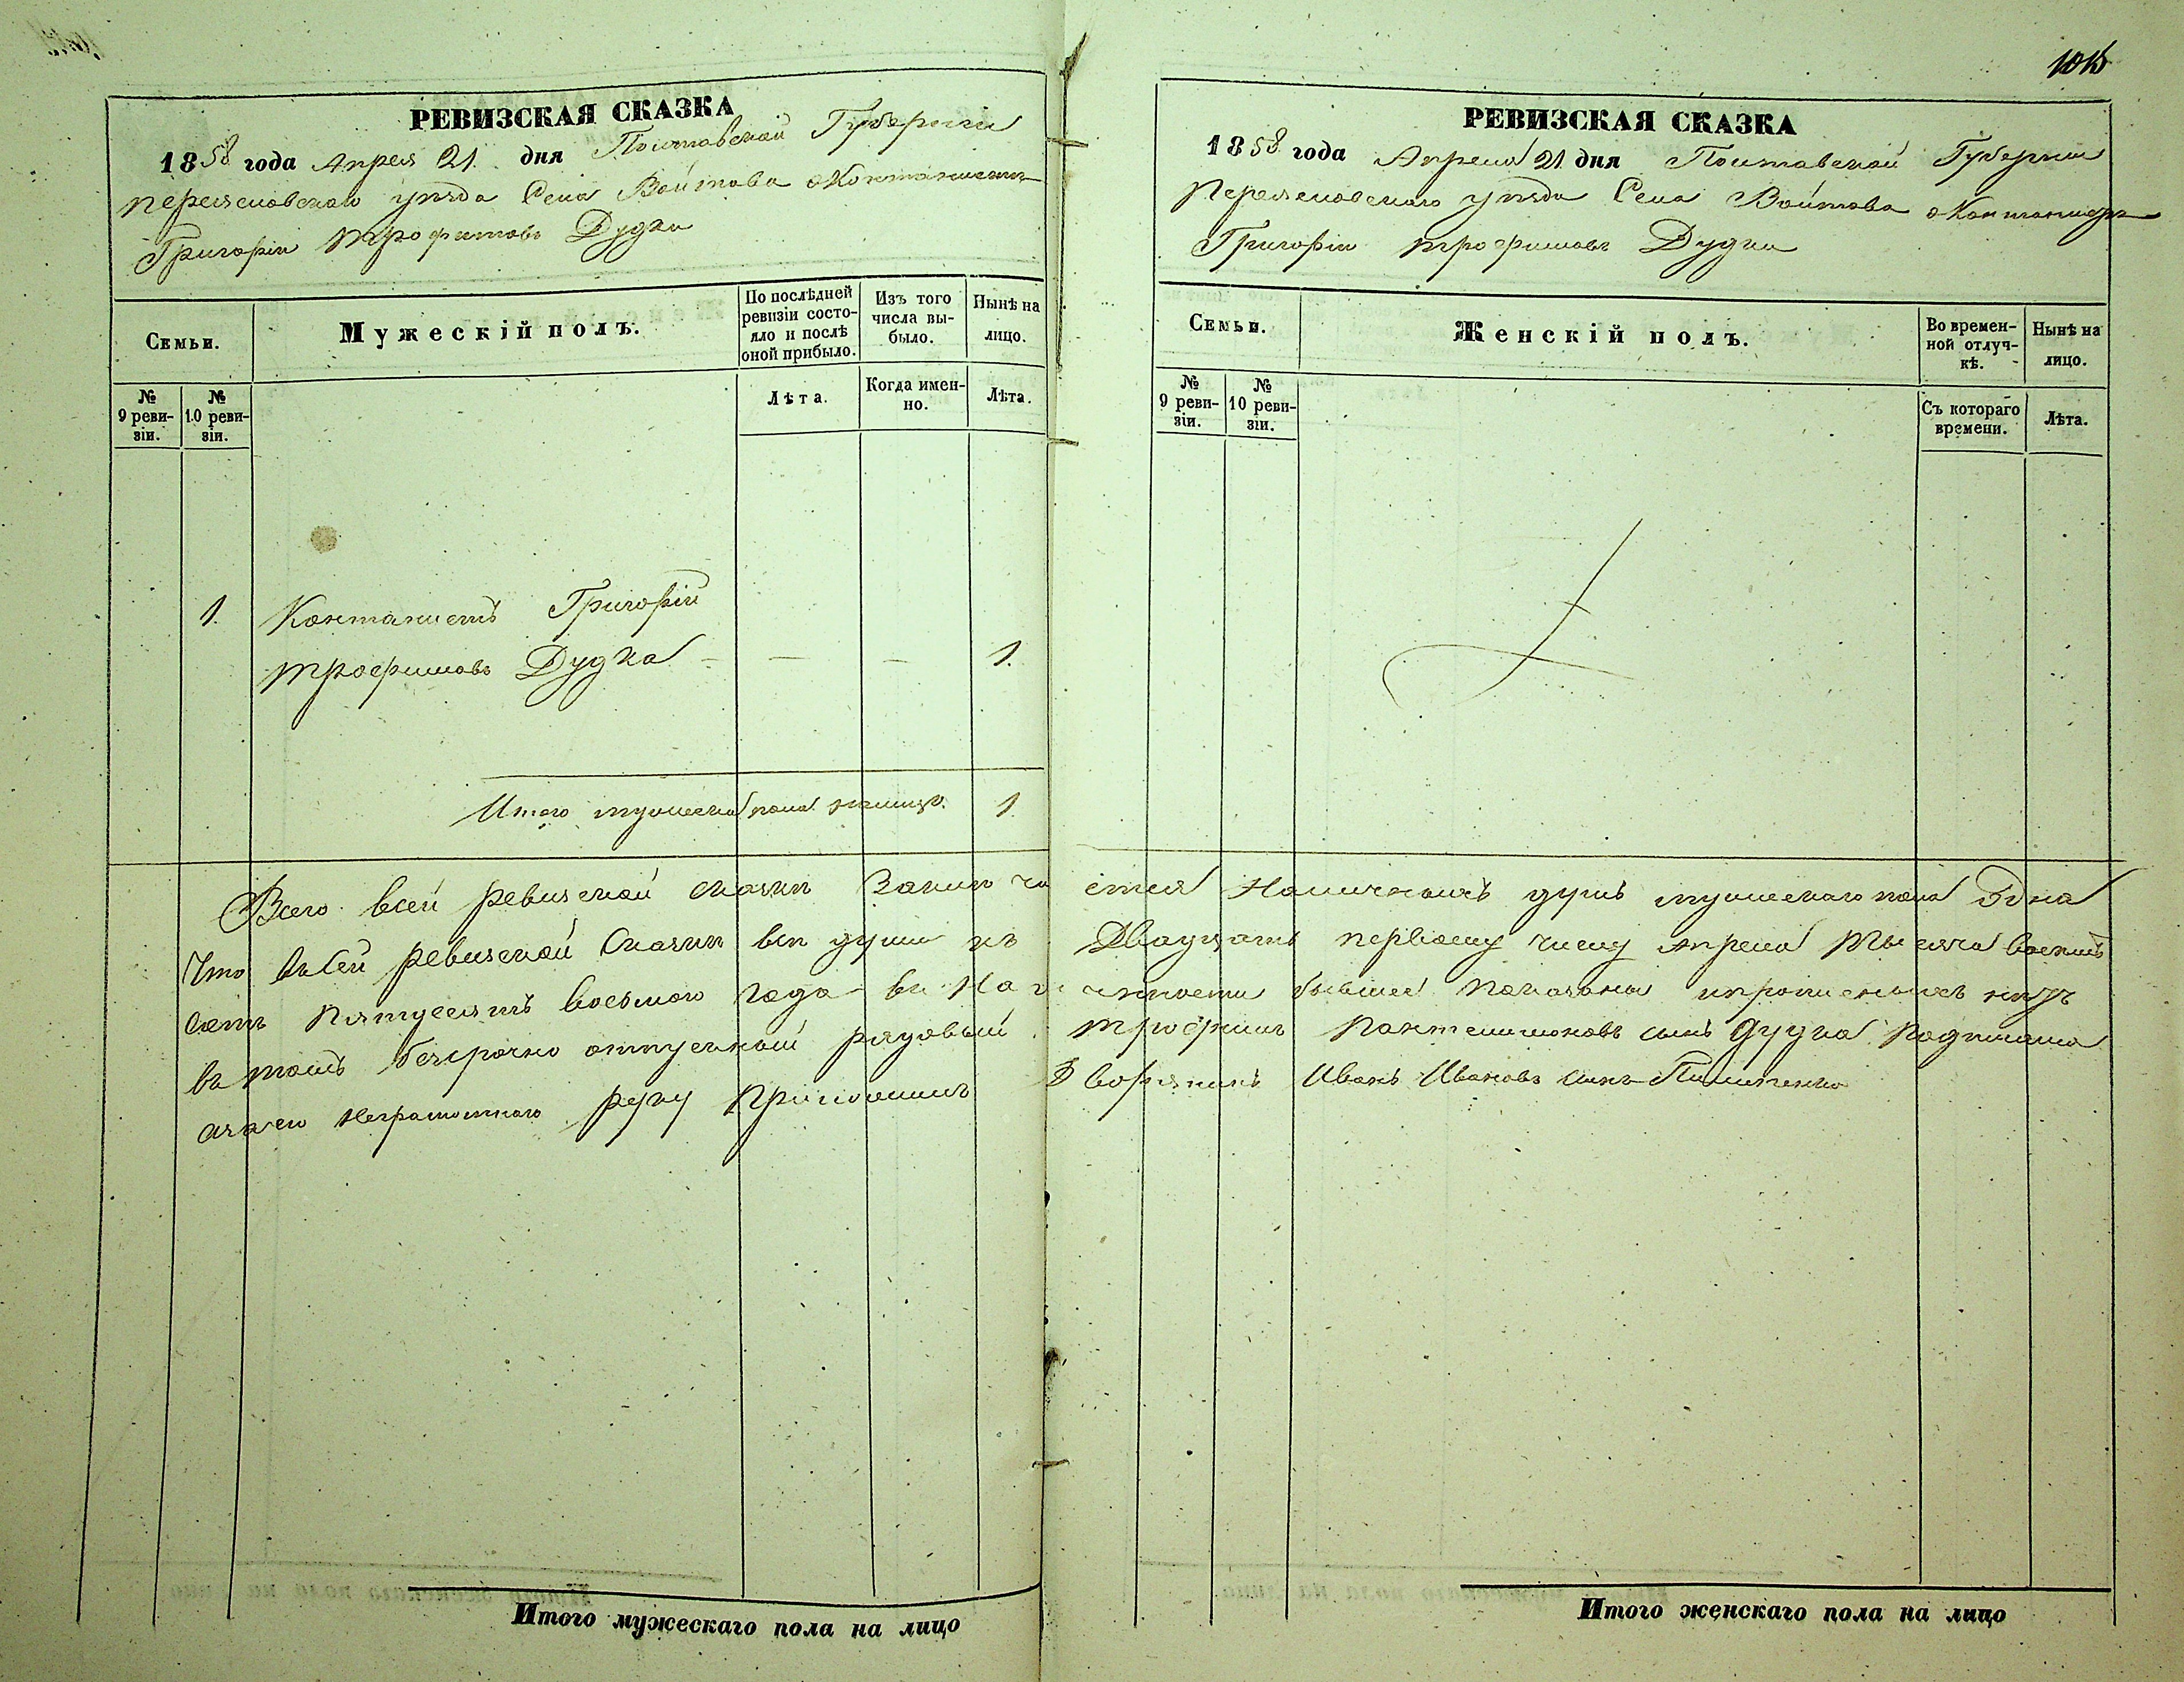 РЕВИЗСКАЯ СКАЗКА
1858 года Апреля 21 дня Полтавской Губернии
Переяславскаго уѣзда Села Войтова о Кантонистѣ
Григоріи Трофимовѣ Дудки
Семьи.
Мужескій полъ.
По послѣдней
ревизіи состо-
яло и послѣ
оной прибыло.
Изъ того
числа вы-
было.
Нынѣ на
лицо.
№
9 реви-
зіи.
№
10 реви-
зіи.
Лѣта.
Когда имен-
но.
Лѣта.
1. Кантонистъ Григорій
Трофимовъ Дудка - — — 1.
Итого мужеска пола налицо. 1
Итого мужескаго пола на лицо
1015
РЕВИЗСКАЯ СКАЗКА
1858 года Апреля 21 дня Полтавской Губернии
Переяславскаго уѣзда Села Войтова о Кантонистѣ
Григоріи Трофимовѣ Дудки
Семьи.
Женскій полъ.
Во времен-
ной отлуч-
кѣ.
Нынѣ на
лицо.
№
9 реви-
зіи.
№
10 реви-
зіи.
Съ котораго
времени.
Лѣта.
Всего всей ревизской сказки Заключается Наличныхъ душъ мужескаго пола Одна
Что въ сей ревизской Сказки все души къ Двадцать первому числу апреля Тысяча восемь
сотъ пятдесятъ восьмого года въ Наличности бывшее показаны и прописныхъ нѣтъ
въ томъ безсрочно отпускной рядовый Трофимъ Пантелимоновъ сынъ Дудка подписался
а за его неграмотнаго руку Приложилъ Дворянинъ Иванъ Ивановъ сынъ
Итого женскаго пола на лицо